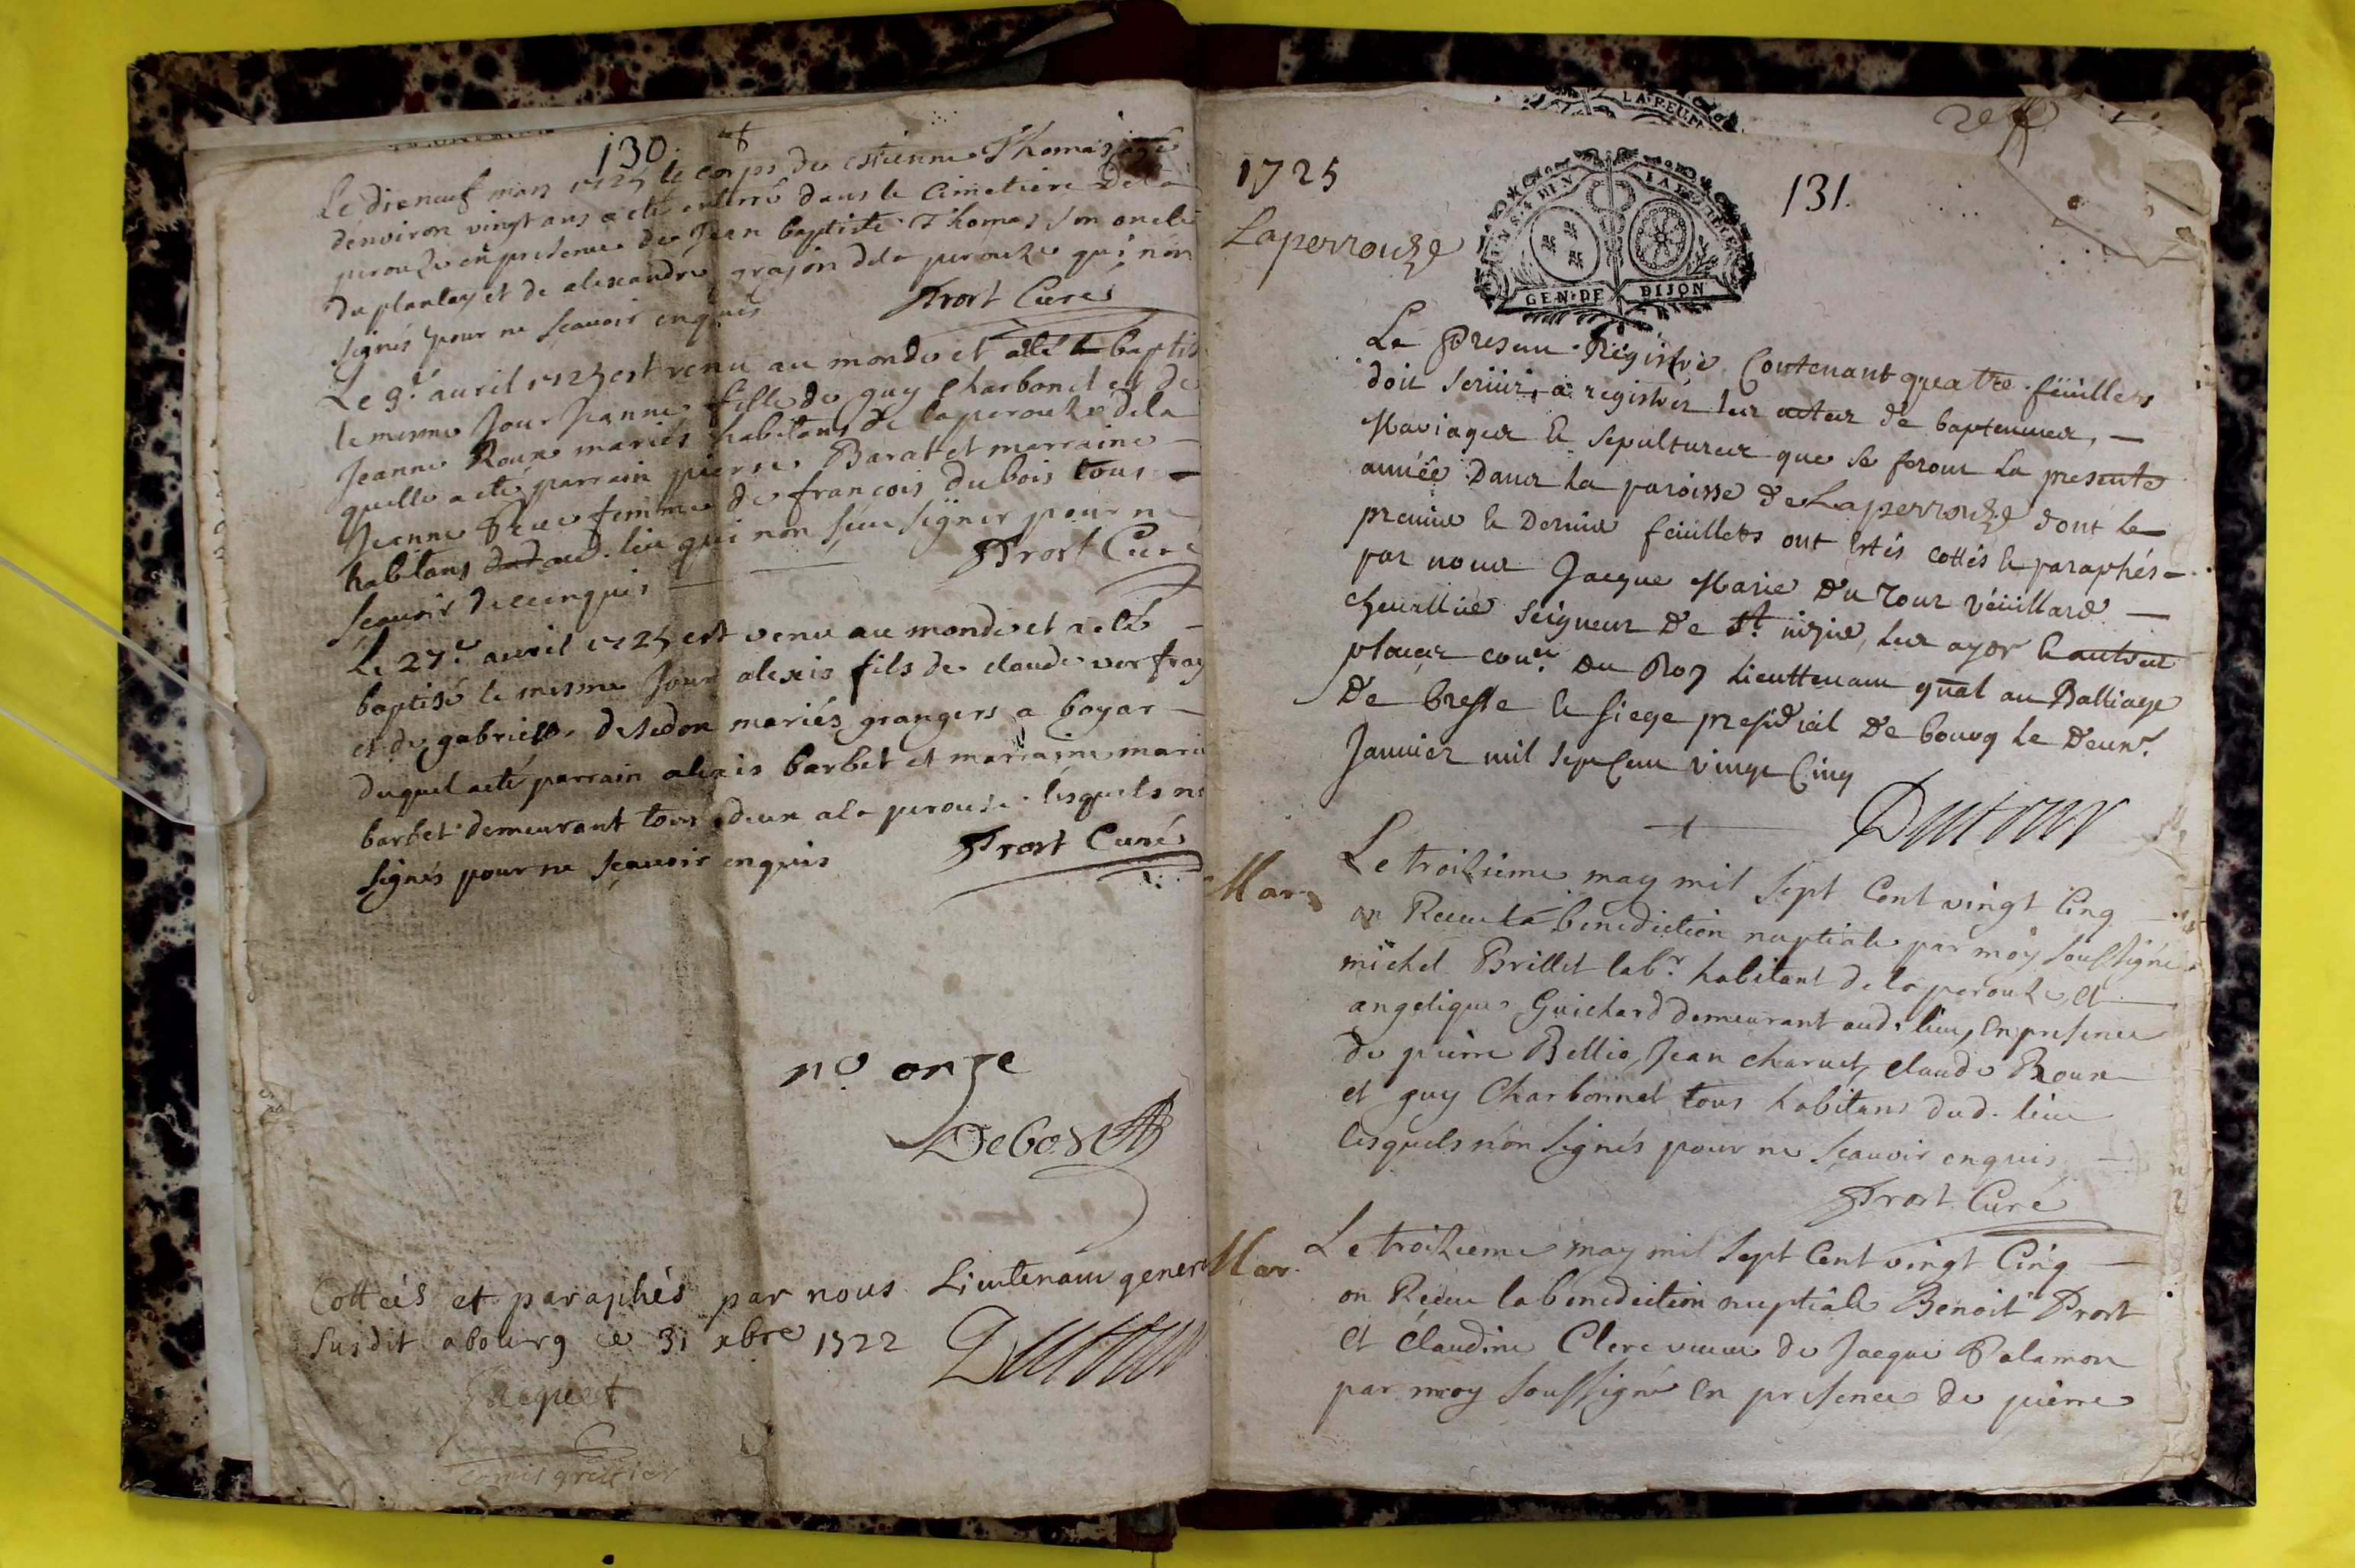 130.
Le dixneuf mars 1725 le corps de estienne Thomas agé
denviron vingt ans a eté enterré dans le Cimetiere de la
perouze en presence de Jean baptiste Thomas son oncle
du plantay et de alexandre grajon de la perouze qui non
signés pour ne sçauoir enquis
Prost Curé
Le 9e. auril 1725 est venu au monde et a eté baptisé
le mesme Jour Jeanne fille de guy Charbonet et de
Jeanne Roux mariés habitans de laperouze de la
quelle a eté parrain pierre Barat et marraine
Jeanne femme de françois dubois tous
habitans dud. lieu qui non sceu signer pour ne
sçauoir de ce enquis
Prost Curé
Le 27e. auril 1725 est venu au monde et a eté
baptisé le mesme Jour alexis fils de claude verfray
et de gabrielle desedon mariés grangers a bayar
duquel a eté parrain alexis barbet et marraine marie
barbet demeurant tous deux a la perouse lesquels n
signés pour ne sçauoir enquis
Prost Curé
no. onze
Debost
Cottées et paraphés par nous Lieutenant general
susdit a bourg ce 31 xbre 1722
Dutour
Jacquet
comis greffier
1725
131.
Laperrouze
GEN. DE DIJON
Le Present Registre Contenant quatre feüillets
doit seruir a registrer les actes de baptemes,
Mariages & sepultures que se feront la presente
année Dans la paroisse de Laperrouze dont le
premier & Dernier feuillets ont estés cottés & paraphés
par nous Jacque Marie Du Tour Veüillard
cheuallier seigneur De St. nizier, les ayes & autres
places coner. Du Roy Lieuttenant gnal au Balliage
De bresse & siege presidial De bourg le Deuxe.
Januier mil sept Cent vingt Cinq
Dutour
Mar.
Le troizieme may mil sept Cent vingt Cinq
on Receu la benediction nuptiale par moy soussigné
michel Brillet labr. habitant de la perouze, et
angelique Guichard demeurant aud. lieu, En presence
de pierre Bellio, Jean charuet, claude Roux
et guy Charbonnet tous habitans dud. lieu
lesquels non signés pour ne sçauoir enquis
Prost Curé
Mar.
Le troizieme may mil sept Cent vingt Cinq
on Receu la benediction nuptiale Benoit Prost
et Claudine Clerc veuue de Jacque Palamon
par moy soussigné En presence de pierre